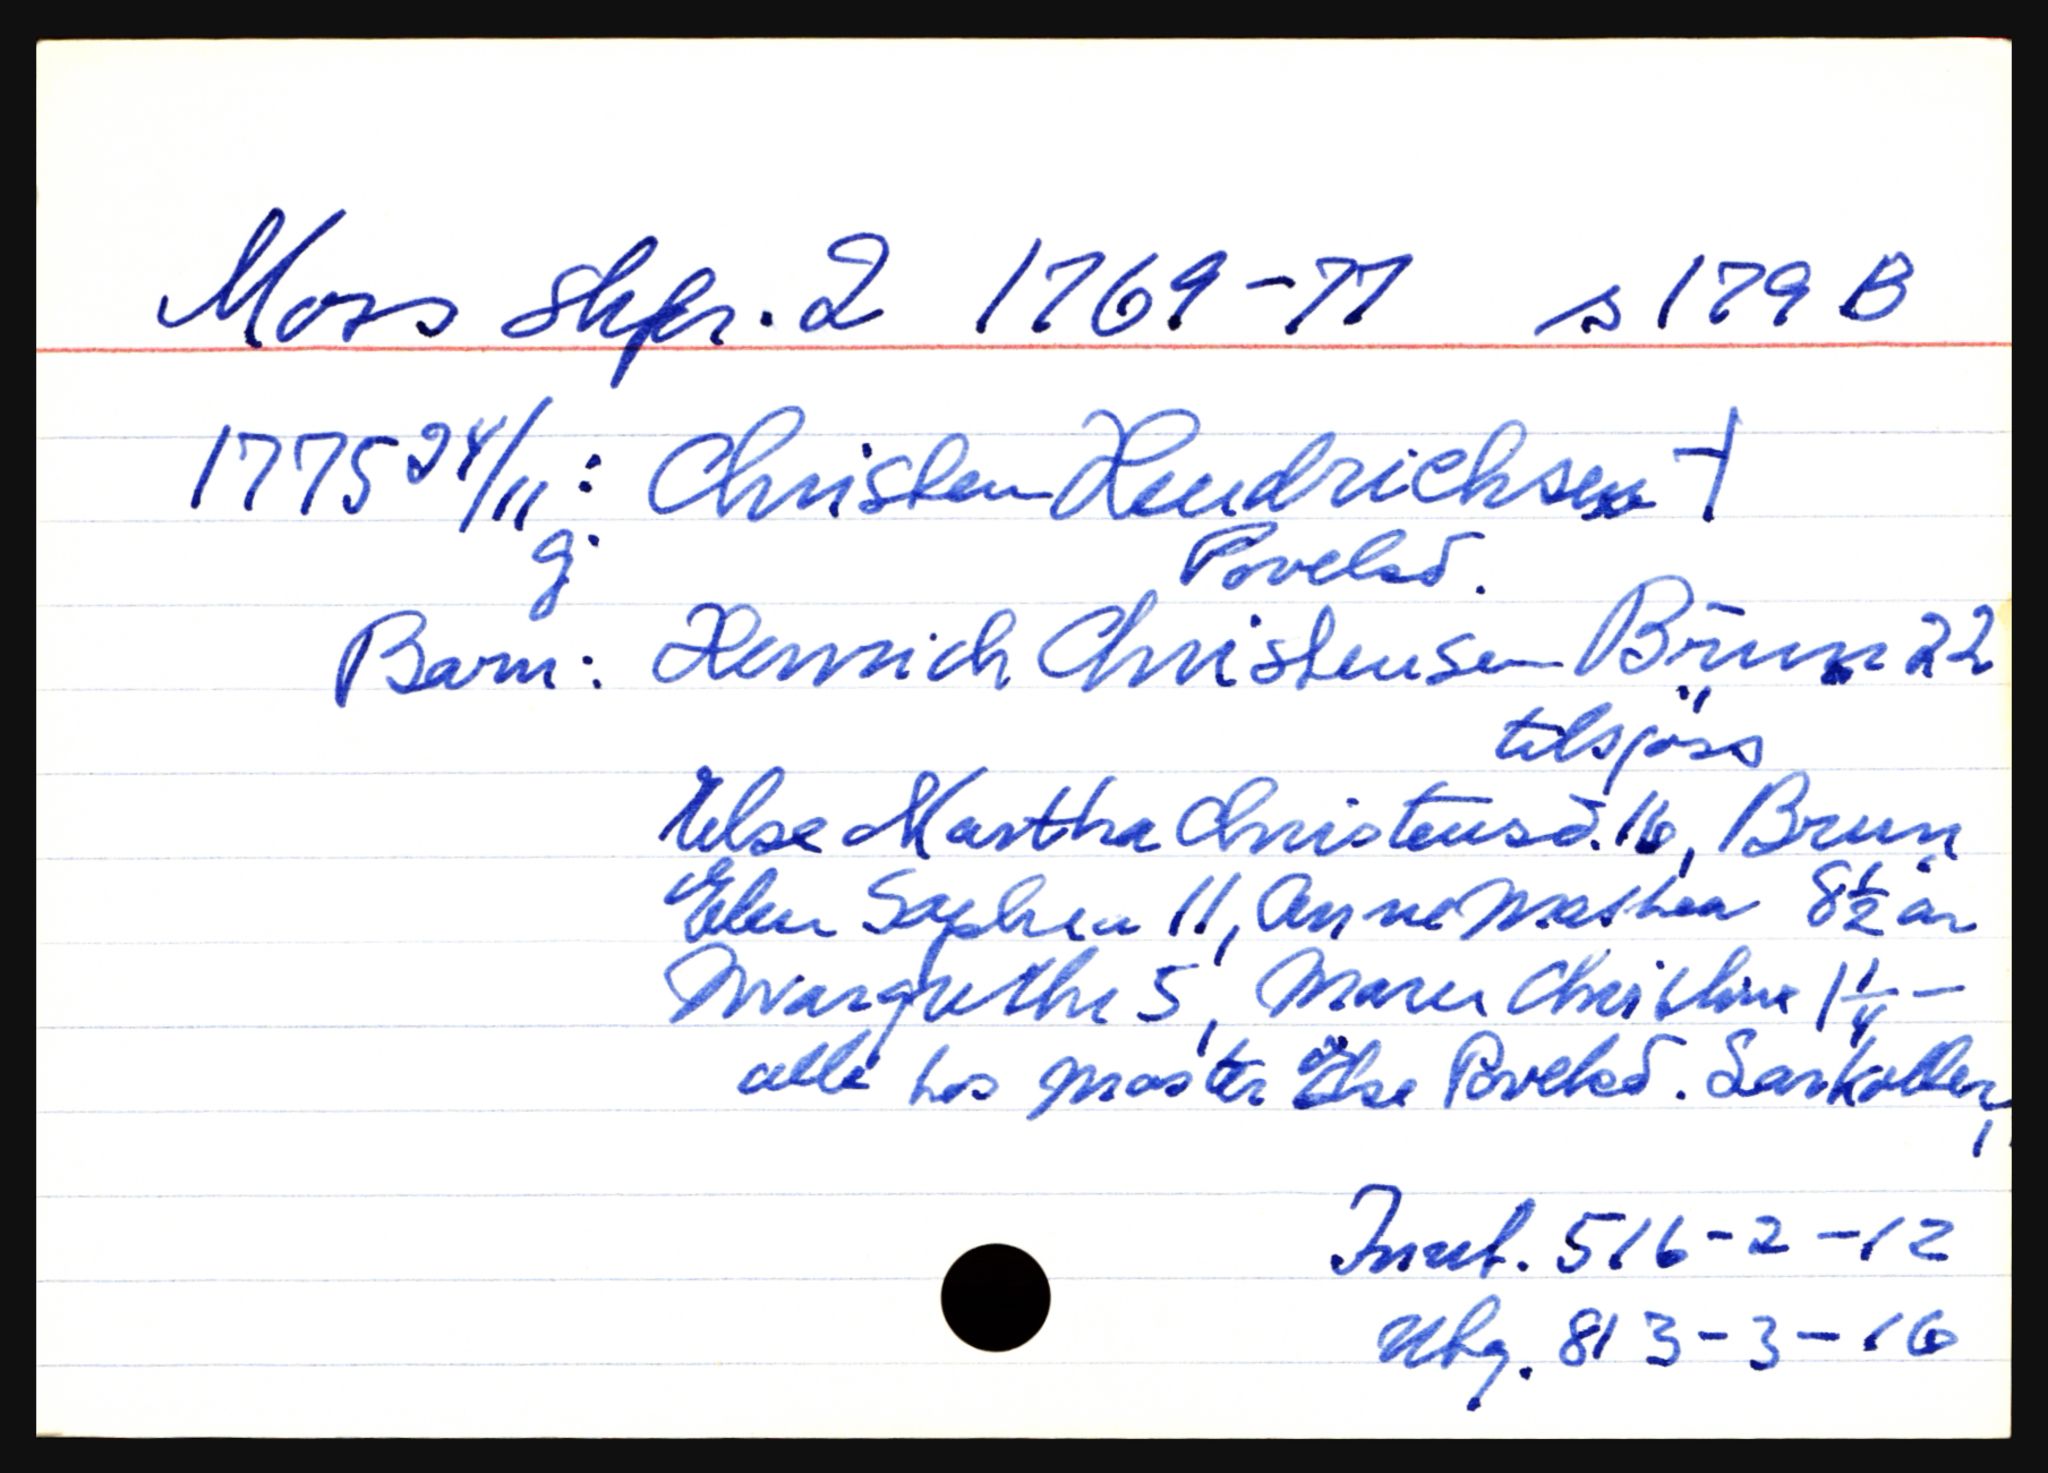 Moss skpr. 2 1769-77 s 179 B
1775 24/11: Christen Hendrichsen †
g: Povelsd.
Barn: Henrich Christensen Brun 22
tilsjöss
Else Martha Christensd. 16, Brun
Elen Sophia 11, Anne Mathea 8½ år
Margrethe 5, Maren Christine 1¼ -
alle hos moster Else Povelsd. Sarkoller,
Innt. 516-2-12
Utg. 813-3-16